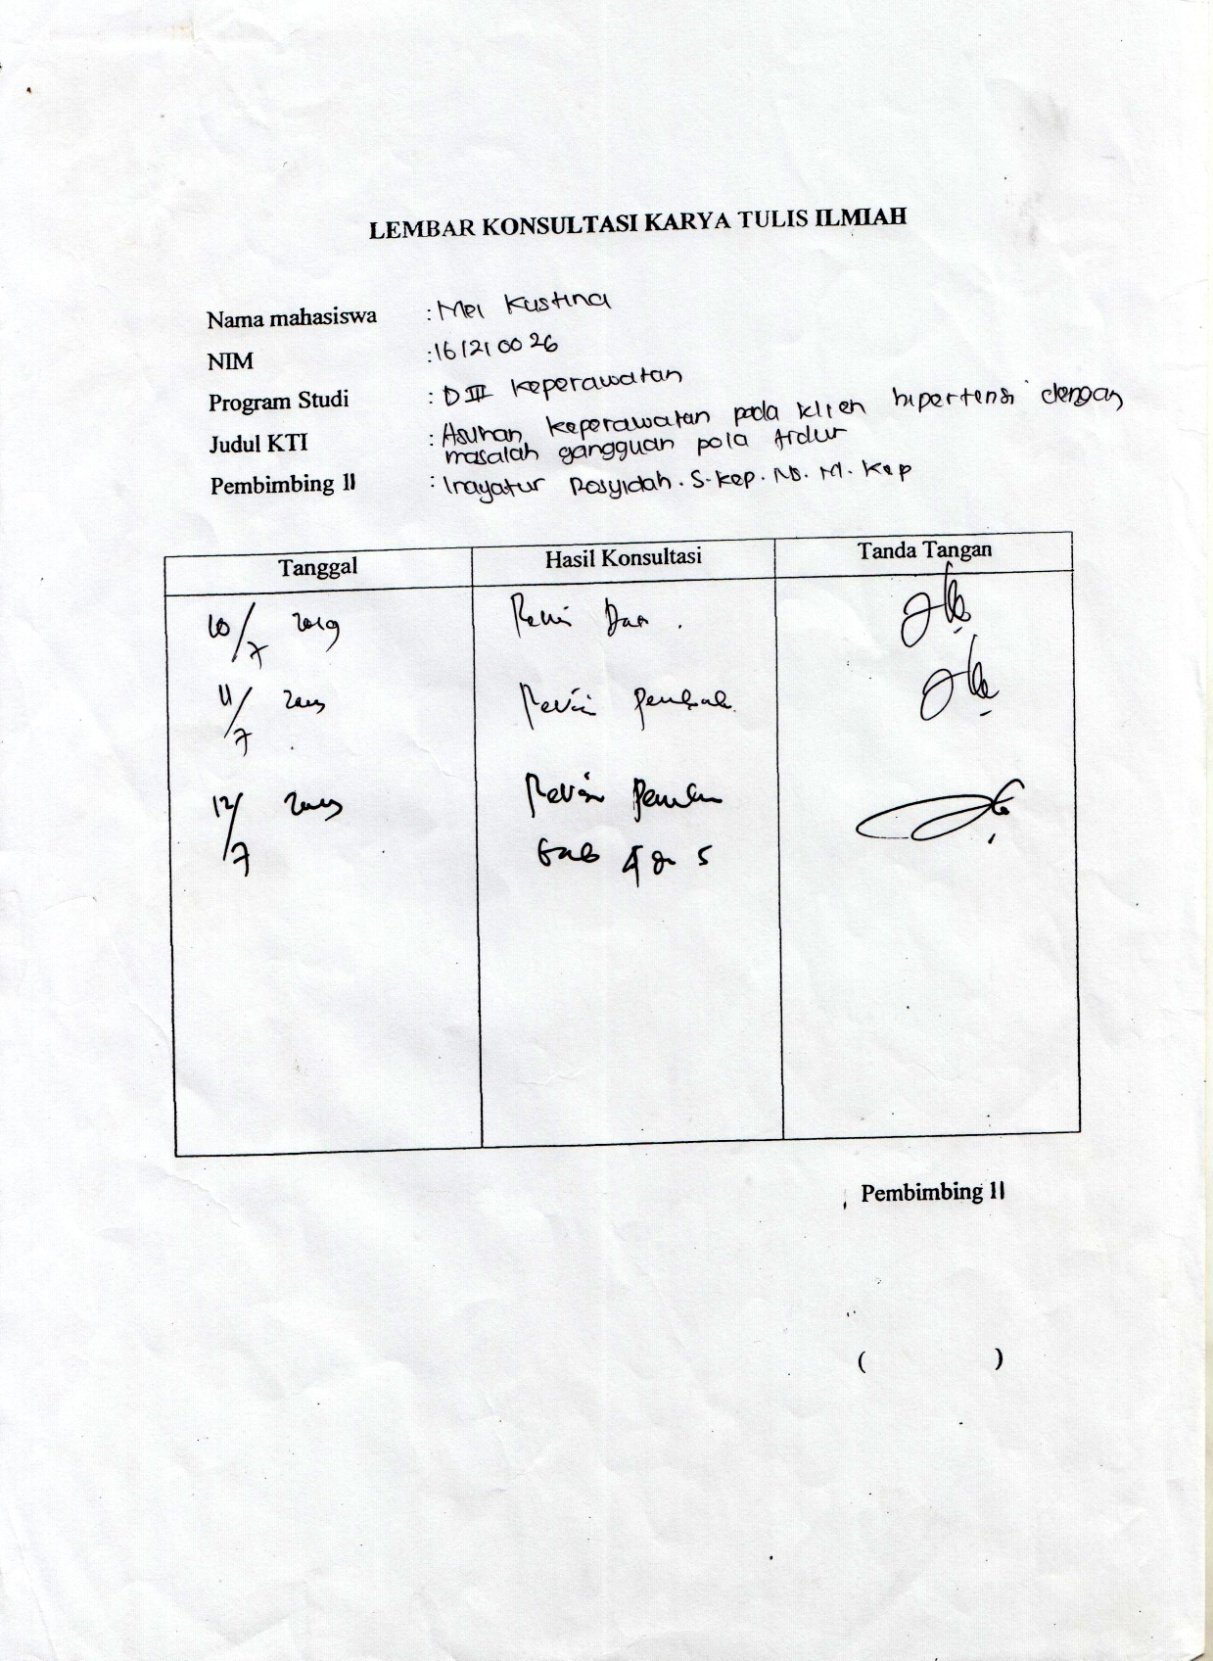 LEMBAR KONSULTASI KARYA TULIS ILMIAH
Nama mahasiswa : Mei Kustina
NIM : 161210026
Program Studi : D III Keperawatan
Judul KTI : Asuhan keperawatan pada klien hipertensi dengan
masalah gangguan pola tidur
Pembimbing II : Inayatur Rosyidah. S.kep. Ns. M. Kep
Tanggal Hasil Konsultasi Tanda Tangan
10/7 2019 Revisi
11/7 2019 Revisi
12/7 2019 Revisi
bab 4 5
Pembimbing II
( )